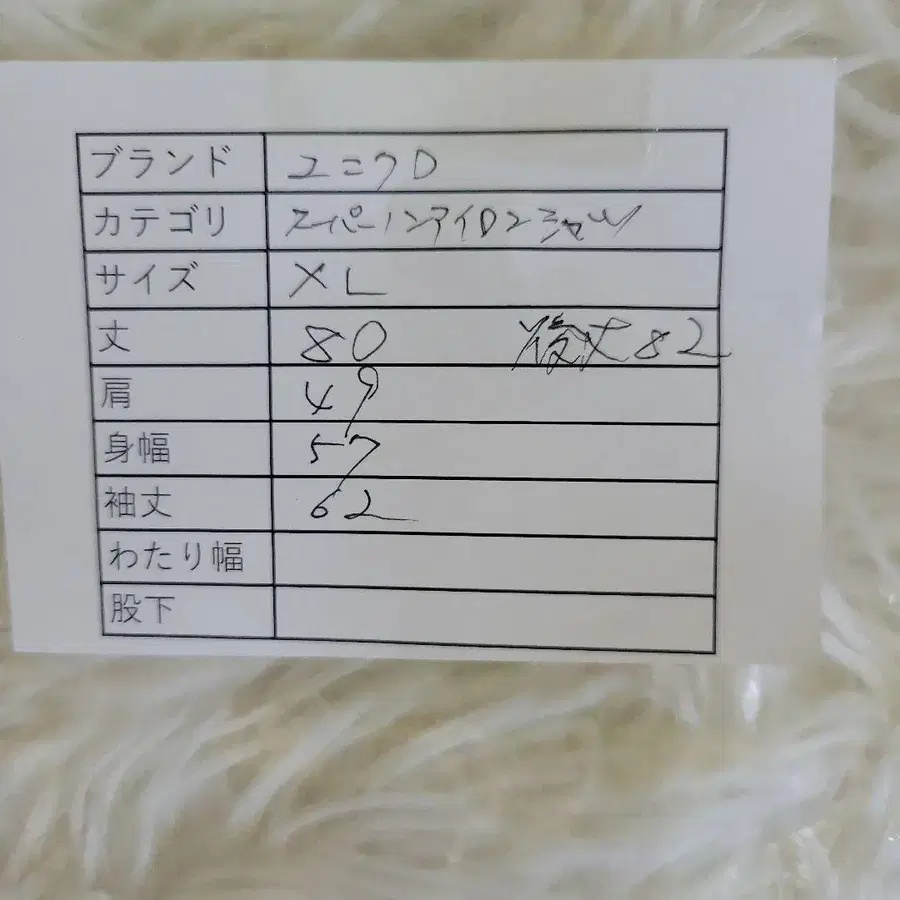 ブランド ユニクロ
カテゴリ スーパーノンアイロンシャツ
サイズ XL
丈 80 後丈82
肩 49
身幅 57
袖丈 62
わたり幅
股下